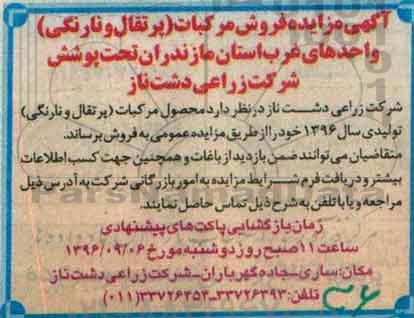 آگهی مزایده فروش مرکبات (پرتقال و نارنگی)
واحدهای غرب استان مازندران تحت پوشش
شرکت زراعی دشت ناز
شرکت زراعی دشت ناز در نظر دارد محصول مرکبات (پرتقال و نارنگی)
تولیدی سال ۱۳۹۶ خود را از طریق مزایده عمومی به فروش برساند.
متقاضیان می توانند ضمن بازدید از باغات و همچنین جهت کسب اطلاعات
بیشتر و دریافت فرم شرایط مزایده به امور بازرگانی شرکت به آدرس ذیل
مراجعه و یا با تلفن به شرح ذیل تماس حاصل نمایند.
زمان بازگشایی پاکت های پیشنهادی
ساعت ۱۱ صبح روز دوشنبه مورخ ۱۳۹۶/۰۹/۰۶
مکان: ساری - جاده گهرباران - شرکت زراعی دشت ناز
تلفن: ۳۳۷۲۶۳۹۳-۳۳۷۲۶۳۵۳ (۰۱۱)